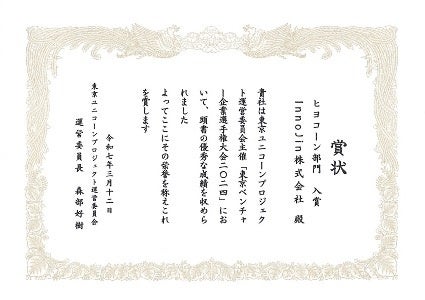 賞状
ヒヨコーン部門　入賞
InnoJin株式会社　殿
貴社は東京ユニコーンプロジェク
ト運営委員会主催「東京ベンチャ
ー企業選手権大会二〇二四」にお
いて、頭書の優秀な成績を収めら
れました
よってここにその栄誉を称えこれ
を賞します
令和七年三月十二日
東京ユニコーンプロジェクト運営委員会
運営委員長　森部好樹